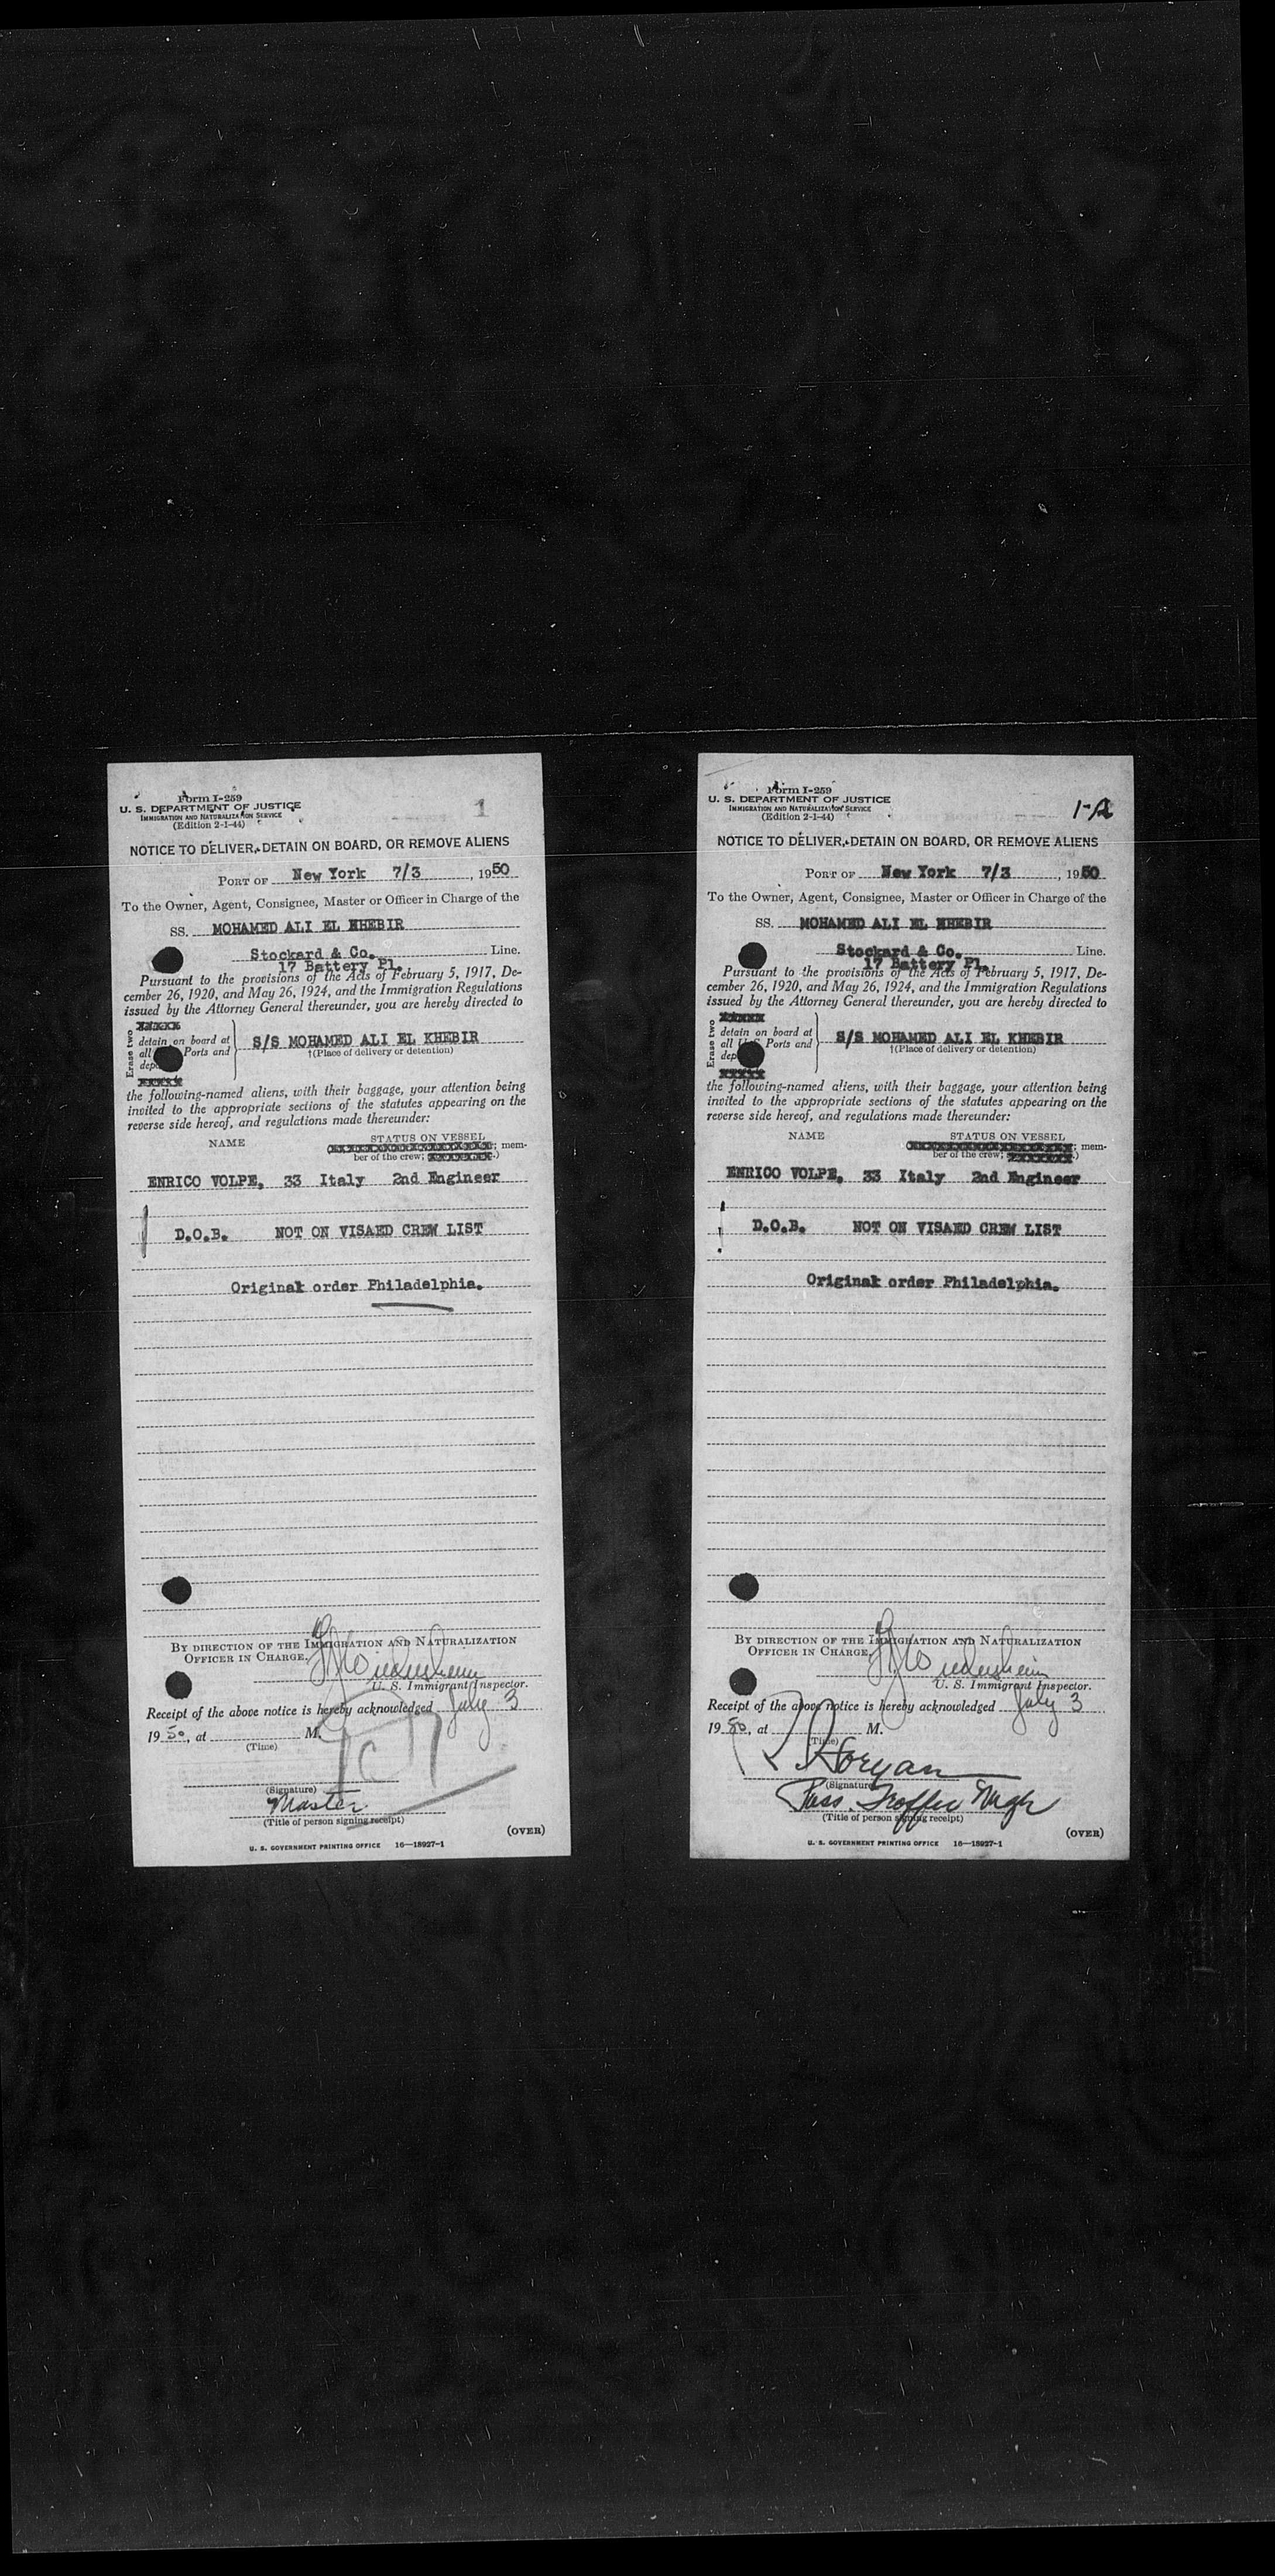 Form I-259
U. S. DEPARTMENT OF JUSTICE
IMMIGRATION AND NATURALIZATION SERVICE
(Edition 2-1-44)
1
NOTICE TO DELIVER, DETAIN ON BOARD, OR REMOVE ALIENS
PORT OF New York 7/3, 1950
To the Owner, Agent, Consignee, Master or Officer in Charge of the
SS. MOHAMED ALI EL KHEBIR
Stockard & Co. Line.
17 Battery Pl.
Pursuant to the provisions of the Acts of February 5, 1917, De-
cember 26, 1920, and May 26, 1924, and the Immigration Regulations
issued by the Attorney General thereunder, you are hereby directed to
Erase two
detain on board at
all Ports and
S/S MOHAMED ALI EL KHEBIR
†(Place of delivery or detention)
the following-named aliens, with their baggage, your attention being
invited to the appropriate sections of the statutes appearing on the
reverse side hereof, and regulations made thereunder:
NAME STATUS ON VESSEL
; mem-
ber of the crew; .)
ENRICO VOLPE, 33 Italy 2nd Engineer
D.O.B. NOT ON VISAED CREW LIST
Original order Philadelphia.
BY DIRECTION OF THE IMMIGRATION AND NATURALIZATION
OFFICER IN CHARGE.
U. S. Immigrant Inspector.
Receipt of the above notice is hereby acknowledged July 3
1950, at M.
(Time)
(Signature)
Master
(Title of person signing receipt)
(OVER)
U. S. GOVERNMENT PRINTING OFFICE 16—18927-1
Form I-259
U. S. DEPARTMENT OF JUSTICE
IMMIGRATION AND NATURALIZATION SERVICE
(Edition 2-1-44)
1-A
NOTICE TO DELIVER, DETAIN ON BOARD, OR REMOVE ALIENS
PORT OF New York 7/3, 1950
To the Owner, Agent, Consignee, Master or Officer in Charge of the
SS. MOHAMED ALI EL KHEBIR
Stockard & Co. Line.
17 Battery Pl.
Pursuant to the provisions of the Acts of February 5, 1917, De-
cember 26, 1920, and May 26, 1924, and the Immigration Regulations
issued by the Attorney General thereunder, you are hereby directed to
Erase two
detain on board at
all U.S. Ports and
S/S MOHAMED ALI EL KHEBIR
†(Place of delivery or detention)
the following-named aliens, with their baggage, your attention being
invited to the appropriate sections of the statutes appearing on the
reverse side hereof, and regulations made thereunder:
NAME STATUS ON VESSEL
; mem-
ber of the crew; .)
ENRICO VOLPE, 33 Italy 2nd Engineer
D.O.B. NOT ON VISAED CREW LIST
Original order Philadelphia.
BY DIRECTION OF THE IMMIGRATION AND NATURALIZATION
OFFICER IN CHARGE.
U. S. Immigrant Inspector.
Receipt of the above notice is hereby acknowledged July 3
1950, at M.
(Time)
(Signature)
Pass. Traffic Mngr
(Title of person signing receipt)
(OVER)
U. S. GOVERNMENT PRINTING OFFICE 16—18927-1